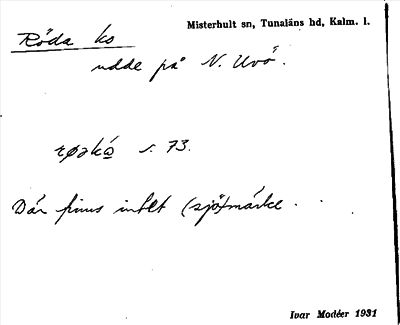 Röda ko
Misterhult sn, Tunaläns hd, Kalm. l.
udde på N. Uvö.
s. 73.
Där finns intet (sjö)märke.
Ivar Modéer 1931